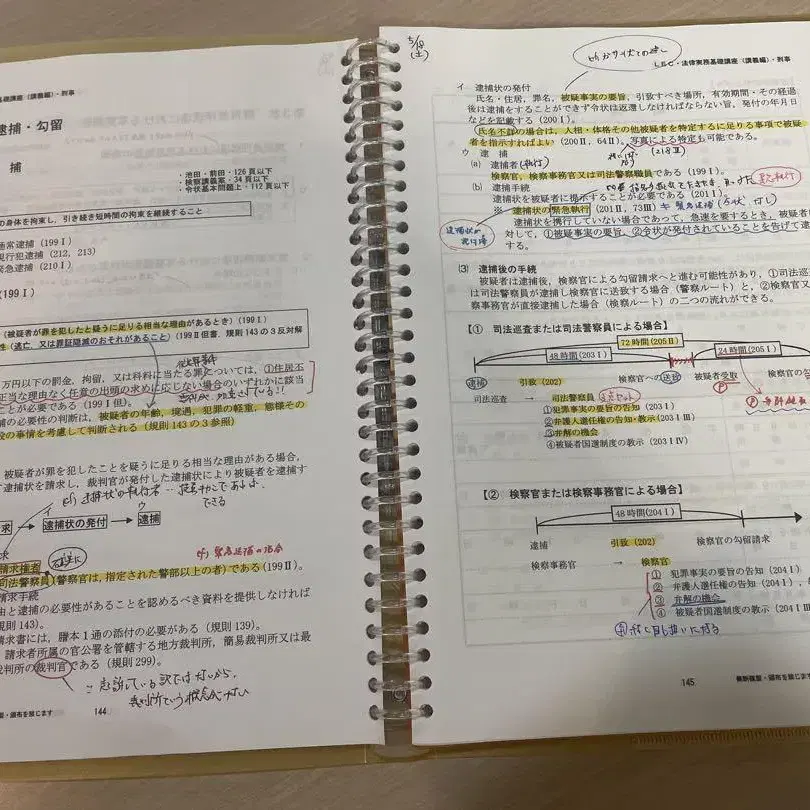 基礎講座（講義編）・刑事
逮捕・勾留
捕
・池田・前田・126頁以下
・検察講義案・34頁以下
・令状基本問題上・112頁以下
の身体を拘束し、引き続き短時間の拘束を継続すること
通常逮捕（199Ⅰ）
現行犯逮捕（212，213）
緊急逮捕（210Ⅰ）
（199Ⅰ）
（被疑者が罪を犯したと疑うに足りる相当な理由があるとき）（199Ⅰ）
性（逃亡，又は罪証隠滅のおそれがあること）（199Ⅱ但書，規則143の3反対解
軽微事件
万円以下の罰金，拘留，又は科料に当たる罪については，①住居不
正当な理由なく任意の出頭の求めに応じない場合のいずれかに該当
ことが必要である（199Ⅰ但）。
捕の必要性の判断は，被疑者の年齢，境遇，犯罪の軽重，態様その
般の事情を考慮して判断される（規則143の3参照）
被疑者が罪を犯したことを疑うに足りる相当な理由がある場合，
す逮捕状を請求し，裁判官が発付した逮捕状により被疑者を逮捕す
できる
イ ウ
求 → 逮捕状の発付 → 逮捕
求
請求権者
司法警察員（警察官は，指定された警部以上の者）である（199Ⅱ）。
請求手続
由と逮捕の必要性があることを認めるべき資料を提供しなければ
規則143）。
請求書には，謄本1通の添付の必要がある（規則139）。
請求者所属の官公署を管轄する地方裁判所，簡易裁判所又は最
裁判所の裁判官である（規則299）。
複製・頒布を禁じます 144
5/18
(土)
LEC・法律実務基礎講座（講義編）・刑事
イ 逮捕状の発付
氏名・住居，罪名，被疑事実の要旨，引致すべき場所，有効期間・その経過
後は逮捕をすることができず令状は返還しなければならない旨，発付の年月日
などを記載する（200Ⅰ）。
氏名不詳の場合は，人相・体格その他被疑者を特定するに足りる事項で被疑
者を指示すればよい（200Ⅱ，64Ⅱ）。写真による特定も可能である。
(218Ⅲ)
ウ 逮 捕
(a) 逮捕者（執行）
検察官，検察事務官又は司法警察職員である（199Ⅰ）。
(b) 逮捕手続
逮捕状を被疑者に提示することが必要である（201Ⅰ）。
※ 逮捕状の緊急執行（201Ⅱ，73Ⅲ）≠ 緊急逮捕（令状なし）
逮捕状を携行していない場合であって，急速を要するとき，被疑者
対して，①被疑事実の要旨，②令状が発付されていることを告げて逮
する。
(3) 逮捕後の手続
被疑者は逮捕後，検察官による勾留請求へと進む可能性があり，①司法巡
は司法警察員が逮捕し検察官に送致する場合（警察ルート）と，②検察官又
察事務官が直接逮捕した場合（検察ルート）の二つの流れができる。
【① 司法巡査または司法警察員による場合】
72時間（205Ⅱ）
48時間（203Ⅰ） 24時間（205Ⅰ）
逮捕 引致（202） 検察官への送致 被疑者受取 検察官の勾
司法巡査 → 司法警察員
①犯罪事実の要旨の告知（203Ⅰ）
②弁護人選任権の告知・教示（203ⅠⅢ）
③弁解の機会
④被疑者国選制度の教示（203Ⅳ）
【② 検察官または検察事務官による場合】
48時間（204Ⅰ）
逮捕 引致（202） 検察官の勾留請求
検察事務官 → 検察官
① 犯罪事実の要旨の告知（204Ⅰ）
② 弁護人選任権の告知（204Ⅰ），
③ 弁解の機会
④ 被疑者国選制度の教示（204Ⅲ
145 無断複製・頒布を禁じます